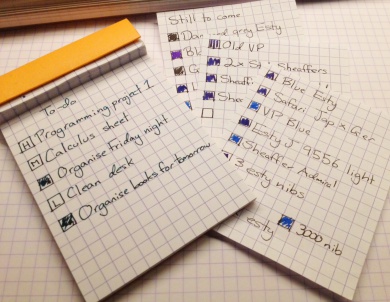 To-do
H Programming project 1
M Calculus sheet
Organise Friday night
L Clean desk
Organise books for tomorrow
Still to come
and grey Esty
Old VP
2x Sheaffers
Blue Esty
Safari Jap x Ger
VP Blue
Esty J 9556 light
Sheaffer Admiral
3 esty nibs
esty 3000 nib